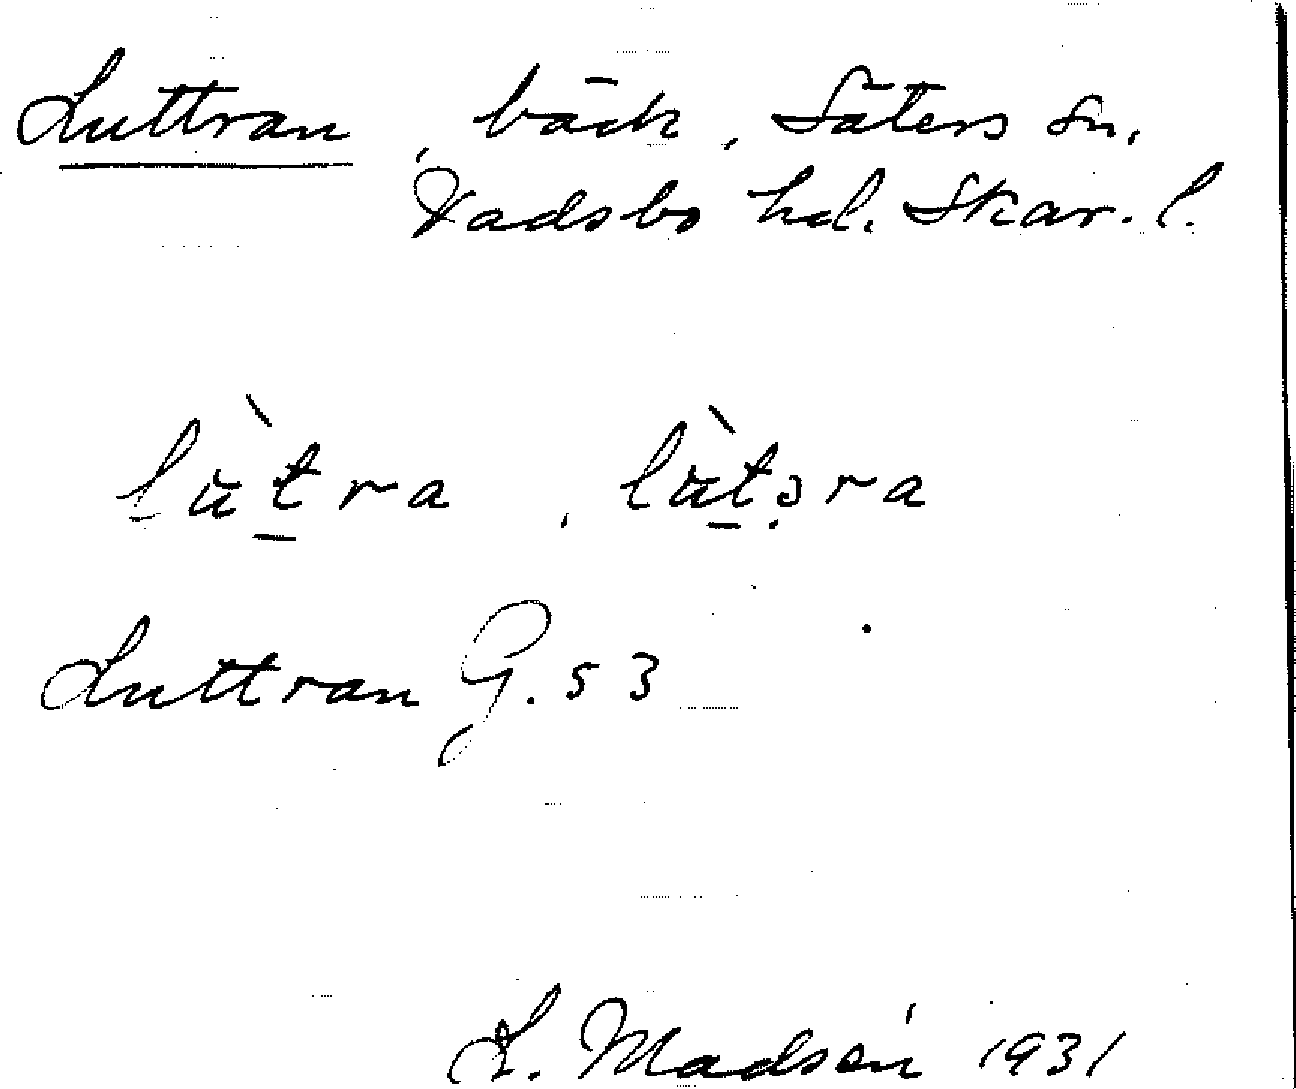 Luttran, bäck, Säters sn.
Vadsbo hd. Skar. l.
lùt̠ra, lùt̠ə̣ra
Luttran G. 53
L. Madsén 1931